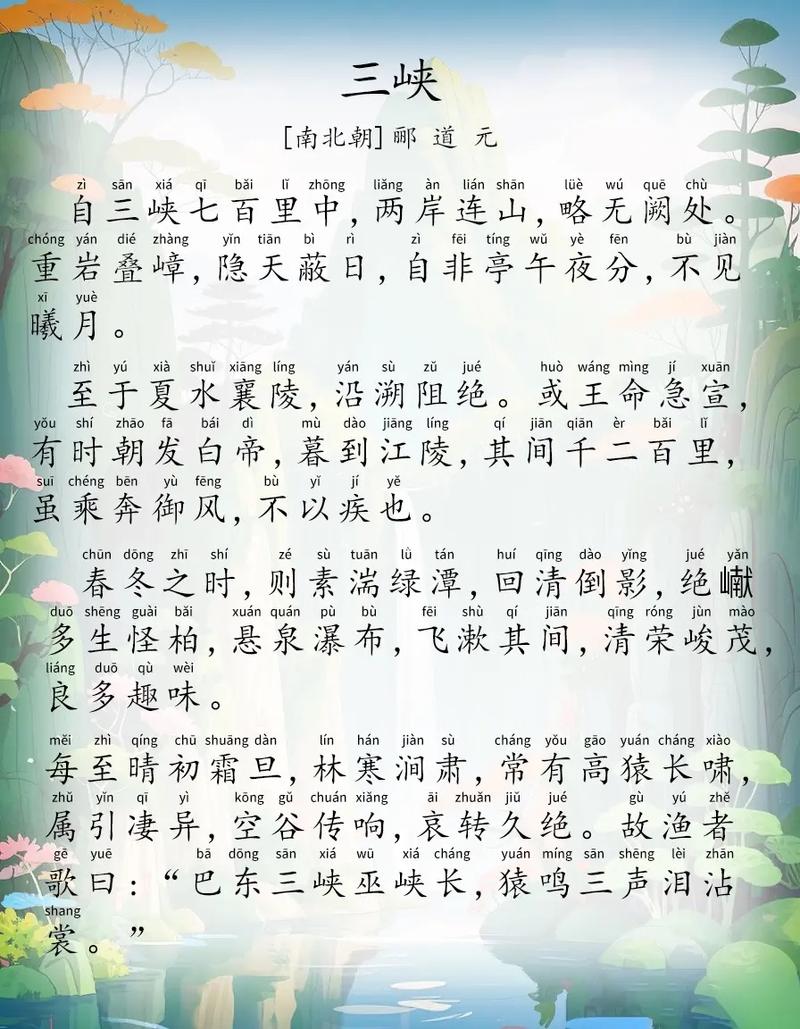 三峡
[南北朝] 郦道元
zì sān xiá qī bǎi lǐ zhōng liǎng àn lián shān lüè wú quē chù
自三峡七百里中，两岸连山，略无阙处。
chóng yán dié zhàng yǐn tiān bì rì zì fēi tíng wǔ yè fēn bù jiàn
重岩叠嶂，隐天蔽日，自非亭午夜分，不见
xī yuè
曦月。
zhì yú xià shuǐ xiāng líng yán sù zǔ jué huò wáng mìng jí xuān
至于夏水襄陵，沿溯阻绝。或王命急宣，
yǒu shí zhāo fā bái dì mù dào jiāng líng qí jiān qiān èr bǎi lǐ
有时朝发白帝，暮到江陵，其间千二百里，
suī chéng bēn yù fēng bù yǐ jí yě
虽乘奔御风，不以疾也。
chūn dōng zhī shí zé sù tuān lǜ tán huí qīng dào yǐng jué yǎn
春冬之时，则素湍绿潭，回清倒影，绝巘
duō shēng guài bǎi xuán quán pù bù fēi shù qí jiān qīng róng jùn mào
多生怪柏，悬泉瀑布，飞漱其间，清荣峻茂，
liáng duō qù wèi
良多趣味。
měi zhì qíng chū shuāng dàn lín hán jiàn sù cháng yǒu gāo yuán cháng xiào
每至晴初霜旦，林寒涧肃，常有高猿长啸，
zhǔ yǐn qī yì kōng gǔ chuán xiǎng āi zhuǎn jiǔ jué gù yú zhě
属引凄异，空谷传响，哀转久绝。故渔者
gē yuē bā dōng sān xiá wū xiá cháng yuán míng sān shēng lèi zhān
歌曰：“巴东三峡巫峡长，猿鸣三声泪沾
shang
裳。”